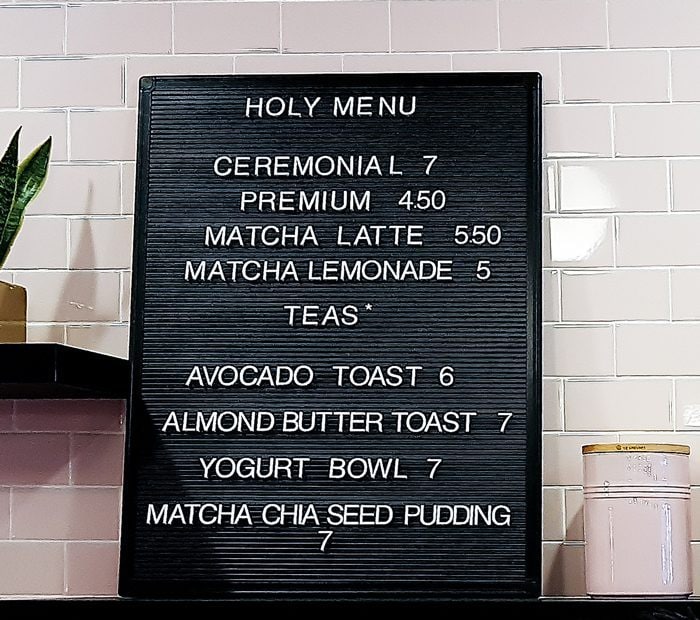 HOLY MENU
CEREMONIAL 7
PREMIUM 4.50
MATCHA LATTE 5.50
MATCHA LEMONADE 5
TEAS*
AVOCADO TOAST 6
ALMOND BUTTER TOAST 7
YOGURT BOWL 7
MATCHA CHIA SEED PUDDING
7